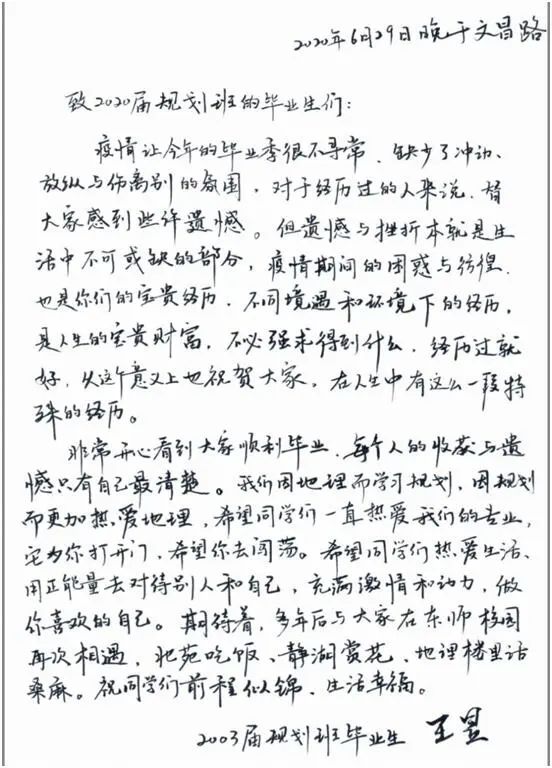 2020年6月29日晚于文昌路
致2020届规划班的毕业生们:
疫情让今年的毕业季很不寻常、缺少了冲动、
放纵与伤离别的氛围,对于经历过的人来说,替
大家感到些许遗憾。但遗憾与挫折本就是生
活中不可或缺的部分,疫情期间的困惑与彷徨.
也是你们的宝贵经历.不同境遇和环境下的经历,
是人生的宝贵财富,不必强求得到什么,经历过就
好,从这个意义上也祝贺大家,在人生中有这么一段特
殊的经历。
非常开心看到大家顺利毕业,每个人的收获与遗
憾只有自己最清楚。我们因地理而学习规划,因规划
而更加热爱地理,希望同学们一直热爱我们的专业,
它为你打开门,希望你去闯荡。希望同学们热爱生活、
用正能量去对待别人和自己,充满激情和动力,做
你喜欢的自己。期待着,多年后与大家在东师校园
再次相遇,北苑吃饭、静湖赏花、地理楼里话
桑麻。祝同学们前程似锦、生活幸福。
2003届规划班毕业生 王昱